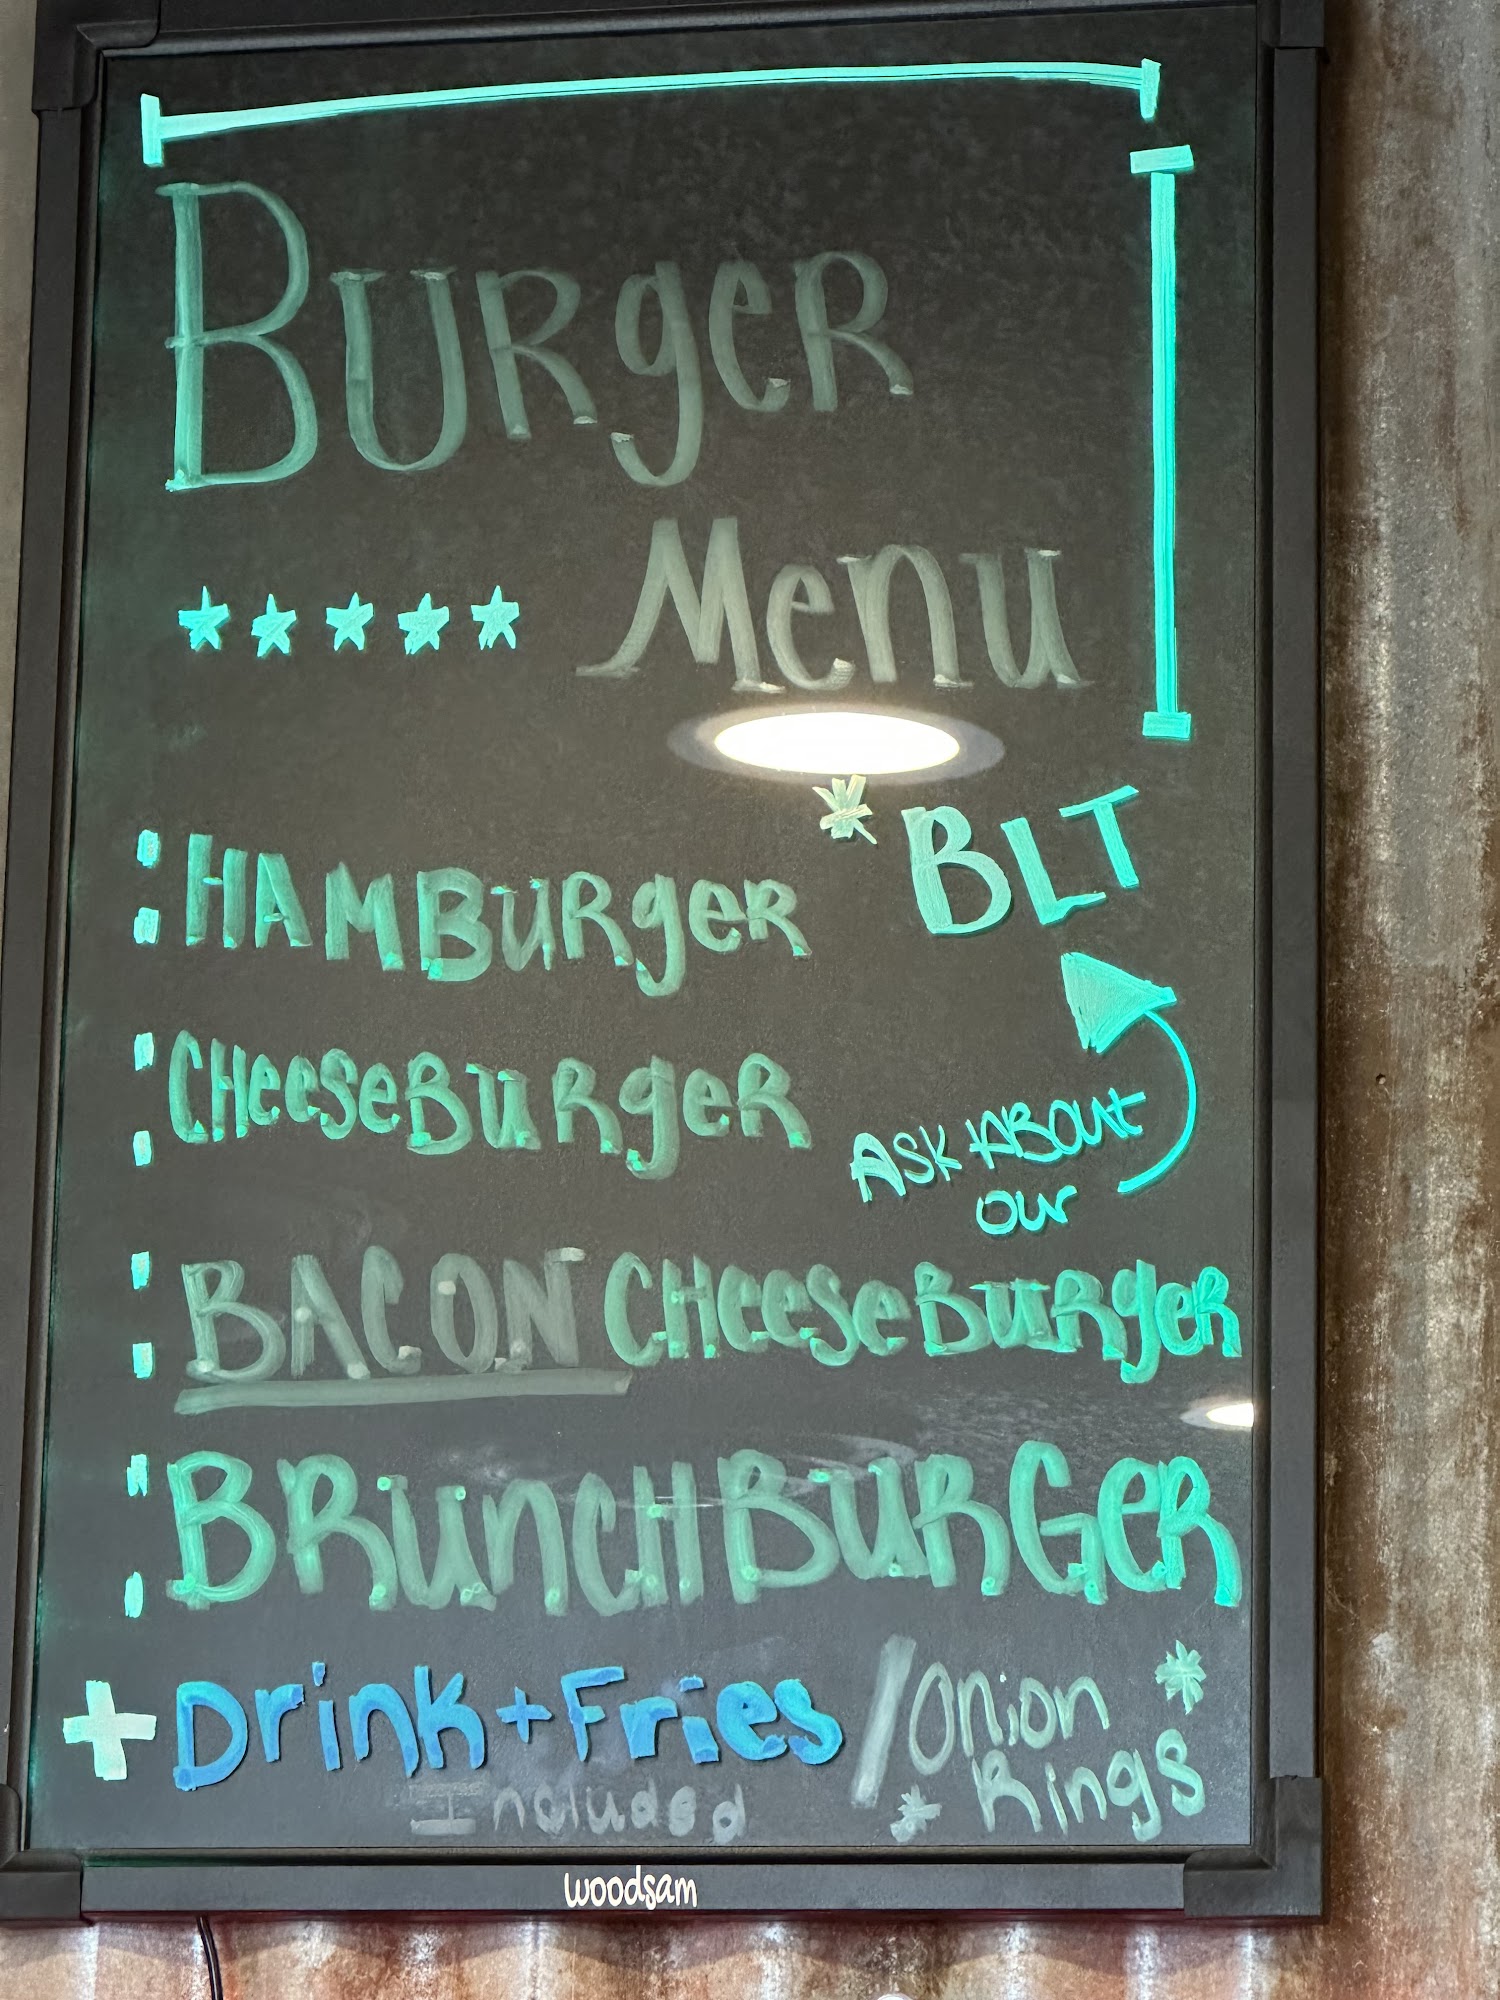 BURgeR
Menu
* BLT
HAMBURgeR
CHeeseBURgeR
ASK ABOUt
our
BACON CHeeseBURgeR
BRUnCHBURGeR
+ Drink + Fries / Onion *
* Rings
Included
woodsam